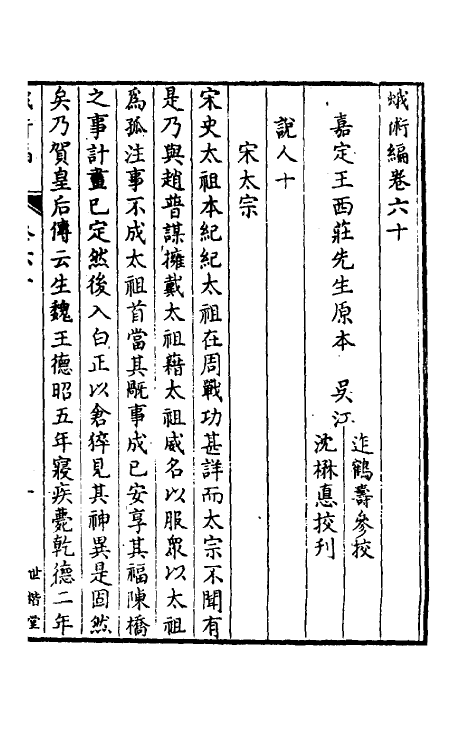 蛾術編卷六十
嘉定王西莊先生原本　吳江
迮鶴壽參挍
沈楙悳挍刊
說人十
宋太宗
宋史太祖本紀紀太祖在周戰功甚詳而太宗不聞有
是乃與趙普謀擁戴太祖藉太祖威名以服眾以太祖
爲孤注事不成太祖首當其㫁事成已安享其福陳橋
之事計畫已定然後入白正以倉猝見其神異是固然
矣乃賀皇后傳云生魏王德昭五年寢疾薨乾德二年
一
世楷堂